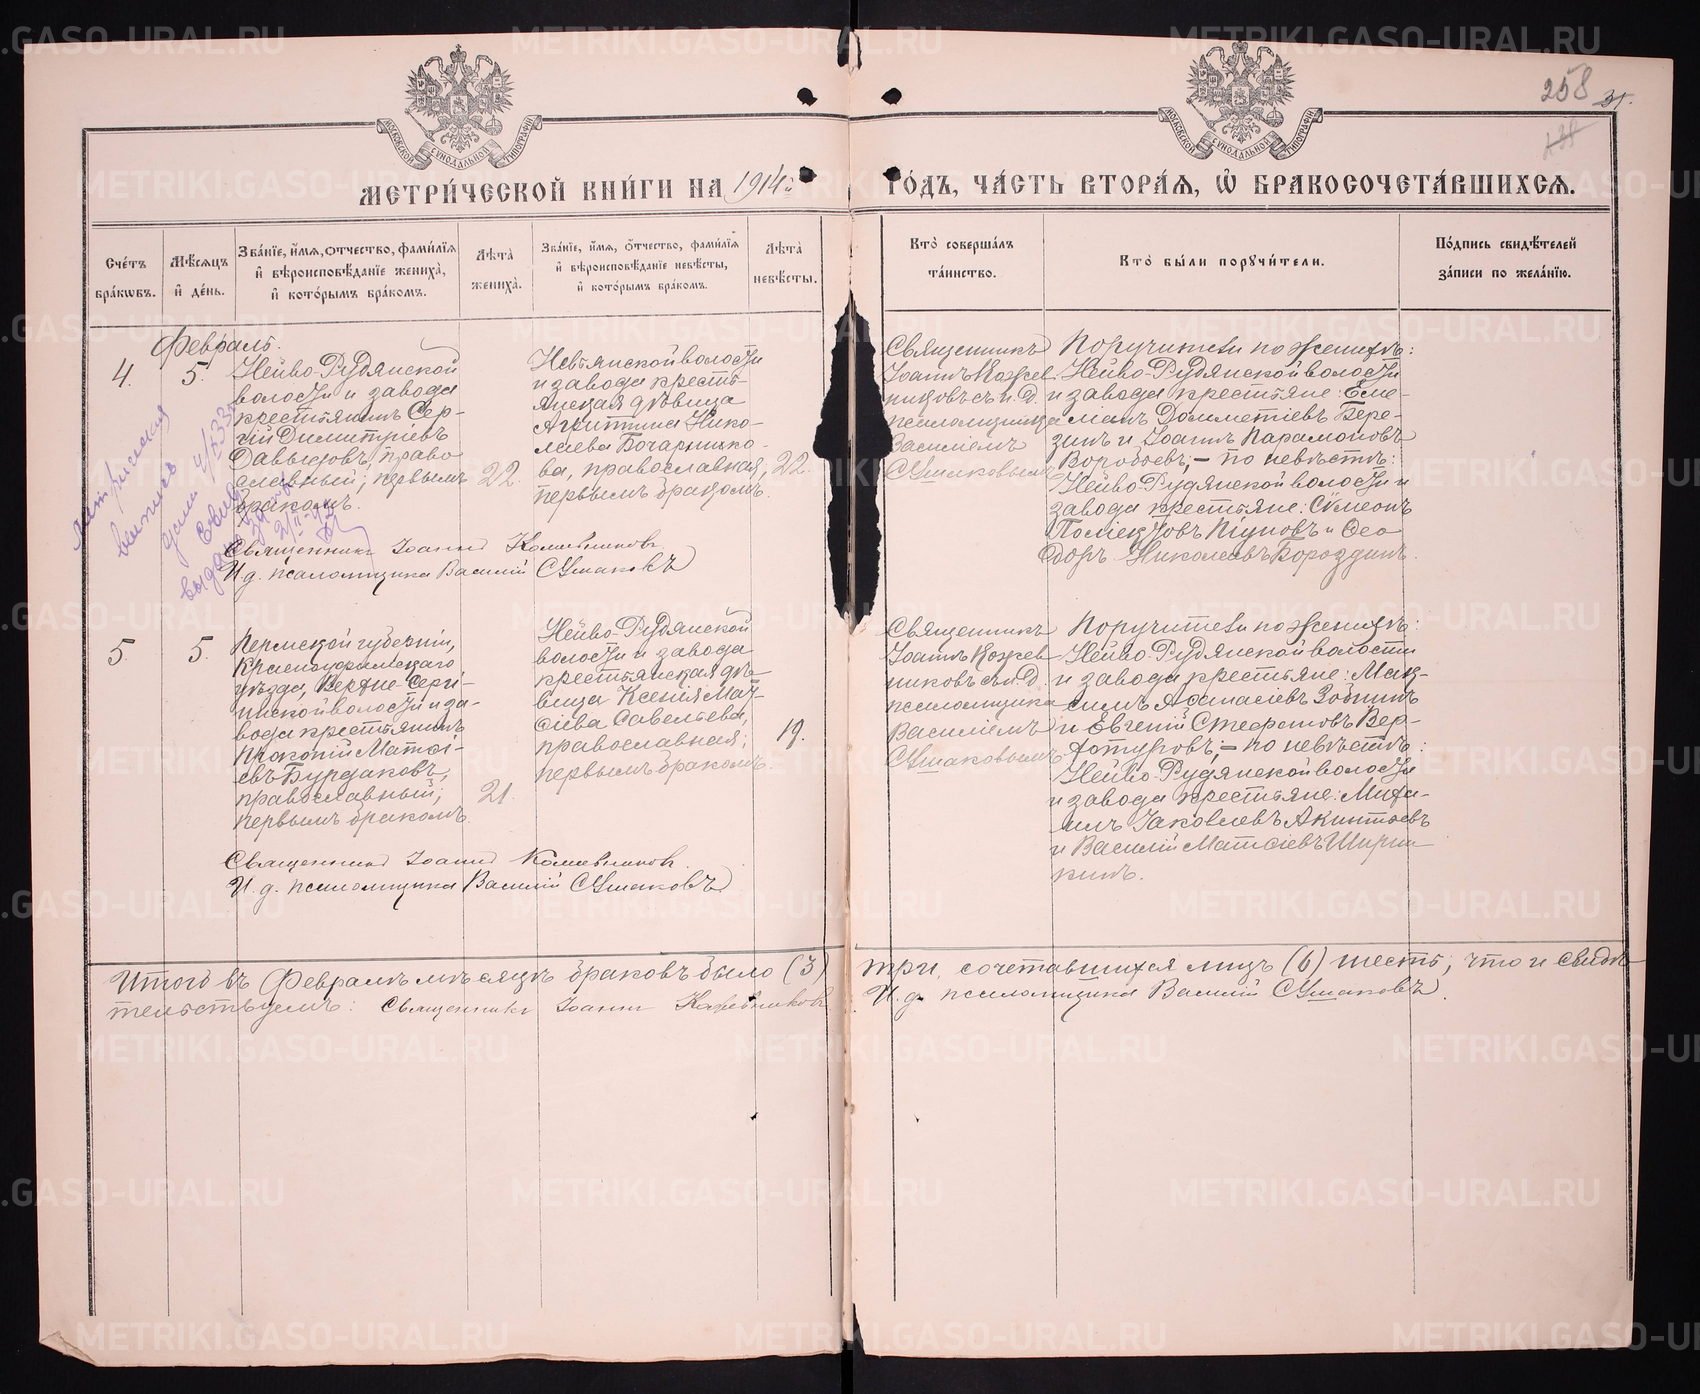 258
МЕТРИ́ЧЕСКОЙ КНИ́ГИ НА 1914й
ГО́ДЪ, ЧА́СТЬ ВТОРА́Я, Ѡ҆ БРАКОСОЧЕТА́ВШИХСЯ.
Сче́тъ бра́ковъ.
Мѣ́сяцъ и҆ де́нь.
Зва́нїе, и҆́мя, ѻ҆́тчество, фами́лїя
и҆ вѣроисповѣ́данїе жениха̀,
и҆ кото́рымъ бра́комъ.
Лѣ́та жениха̀.
Зва́нїе, и҆́мя, ѻ҆́тчество, фами́лїя
и҆ вѣроисповѣ́данїе невѣ́сты,
и҆ кото́рымъ бра́комъ.
Лѣ́та невѣ́сты.
Кто̀ соверша́лъ та́инство.
Кто̀ бы́ли порꙋчи́тели.
По́дпись свидѣ́телей
за́писи по жела́нїю.
Февраль.
4.
5.
Нейво-Рудянской
волости и завода
крестьянинъ Сер-
гій Димитріевъ
Давыдовъ, право
славный; первымъ
бракомъ.
22.
Невьянской волости
и завода кресть-
янская дѣвица
Агриппина Нико-
лаева Бочарнико-
ва, православная,
первымъ бракомъ.
22.
Священникъ
Іоаннъ Кожев
никовъ съ и. д.
псаломщика
Василіемъ
Ушаковымъ
Поручители по женихѣ:
Нейво-Рудянской волости
и завода крестьяне: Еме-
ліанъ Дометіевъ Бере-
зинъ и Іоаннъ Парамоновъ
Воробьевъ; – по невѣстѣ:
Нейво-Рудянской волости и
завода крестьяне: Сѵмеонъ
Поліектовъ Пѣуновъ и Ѳео
доръ Николаевъ Бороздинъ.
Священникъ Іоаннъ Кожевниковъ
И. д. псаломщика Василій Ушаковъ
5.
5.
Пермской губерніи,
Красноуфимскаго
уѣзда, Верхне-Серги-
нской волости и за-
вода крестьянинъ
Прокопій Матѳі-
евъ Бурдаковъ,
православный;
первымъ бракомъ
21.
Нейво-Рудянской
волости и завода
крестьянская дѣ-
вица Ксенія Мат-
ѳіева Савельева,
православная;
первымъ бракомъ.
19.
Священникъ
Іоаннъ Кожев
никовъ съ и. д.
псаломщика
Василіемъ
Ушаковымъ
Поручители по женихѣ:
Нейво-Рудянской волости
и завода крестьяне: Мак-
симъ Аѳанасіевъ Зобнинъ
и Евгеній Стефановъ Вер-
хотуровъ; – по невѣстѣ:
Нейво-Рудянской волости
и завода крестьяне: Миха-
илъ Іаковлевъ Акинтьевъ
и Василій Матѳіевъ Шиpин-
кинъ.
Священникъ Іоаннъ Кожевниковъ.
И. д. псаломщика Василій Ушаковъ
Итого въ Февралѣ мѣсяцѣ браковъ было (3) три, сочетавшихся лицъ (6) шесть, что и свидѣ-
тельствуемъ: Священникъ Іоаннъ Кожевниковъ И. д. псаломщика Василій Ушаковъ.
METRIKI.GASO-URAL.RU